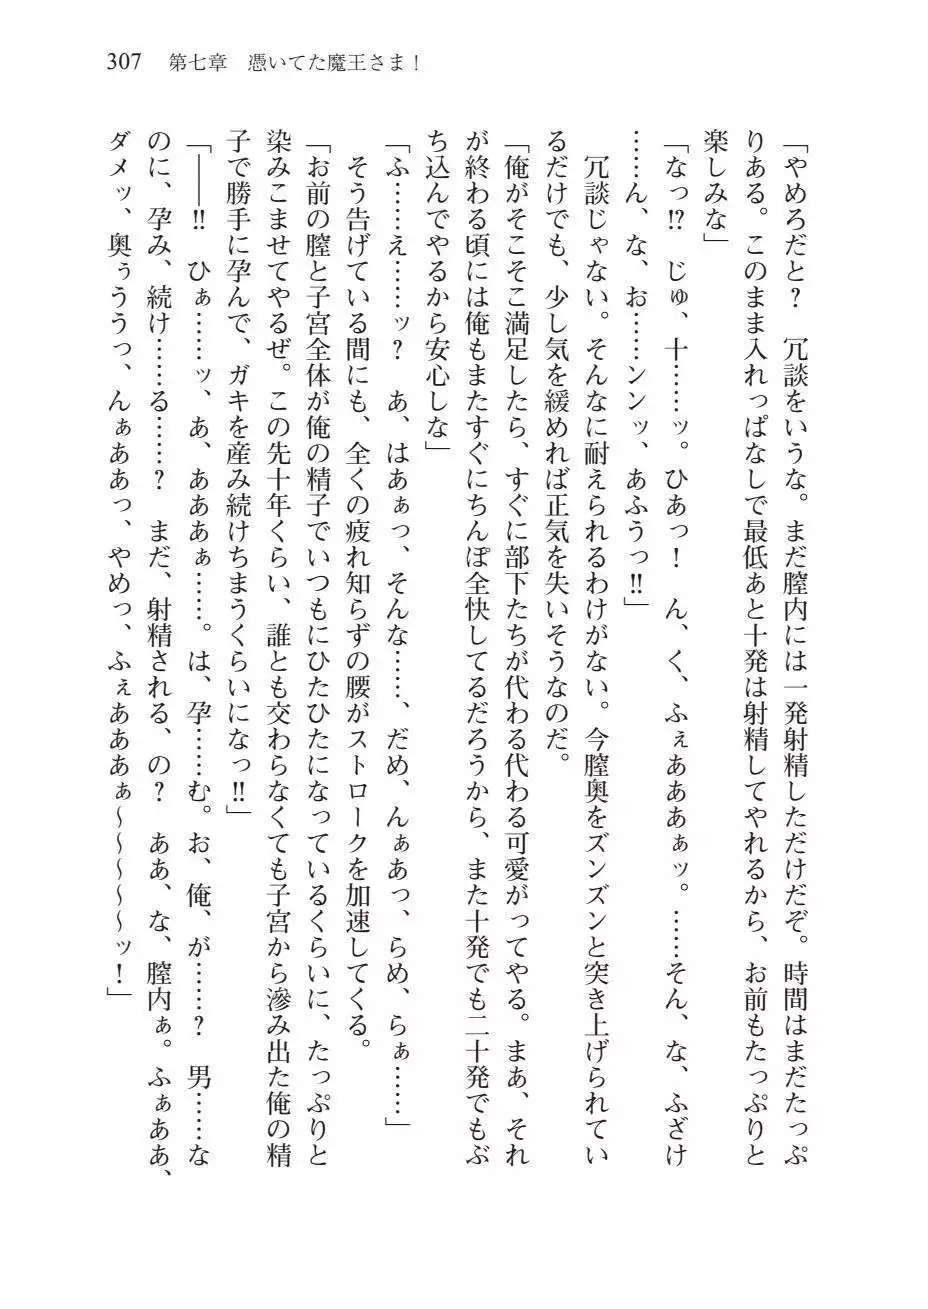 307　第七章　憑いてた魔王さま！
「やめろだと？　冗談をいうな。まだ膣内には一発射精しただけだぞ。時間はまだたっぷ
りある。このまま入れっぱなしで最低あと十発は射精してやれるから、お前もたっぷりと
楽しみな」
「なっ⁉　じゅ、十……ッ。ひあっ！　ん、く、ふぇあああぁッ。……そん、な、ふざけ
……ん、な、お……ンンッ、あふうっ‼」
　冗談じゃない。そんなに耐えられるわけがない。今膣奥をズンズンと突き上げられてい
るだけでも、少し気を緩めれば正気を失いそうなのだ。
「俺がそこそこ満足したら、すぐに部下たちが代わる代わる可愛がってやる。まあ、それ
が終わる頃には俺もまたすぐにちんぽ全快してるだろうから、また十発でも二十発でもぶ
ち込んでやるから安心しな」
「ふ……え……ッ？　あ、はあぁっ、そんな……、だめ、んぁあっ、らめ、らぁ……」
　そう告げている間にも、全くの疲れ知らずの腰がストロークを加速してくる。
「お前の膣と子宮全体が俺の精子でいつもにひたひたになっているくらいに、たっぷりと
染みこませてやるぜ。この先十年くらい、誰とも交わらなくても子宮から滲み出た俺の精
子で勝手に孕んで、ガキを産み続けちまうくらいになっ‼」
「――‼　ひぁ……ッ、あ、あああぁ……。は、孕……む。お、俺、が……？　男……な
のに、孕み、続け……る……？　まだ、射精される、の？　ああ、な、膣内ぁ。ふぁああ、
ダメッ、奥ぅううっ、んぁああっ、やめっ、ふぇあああぁ～～～～～ッ！」